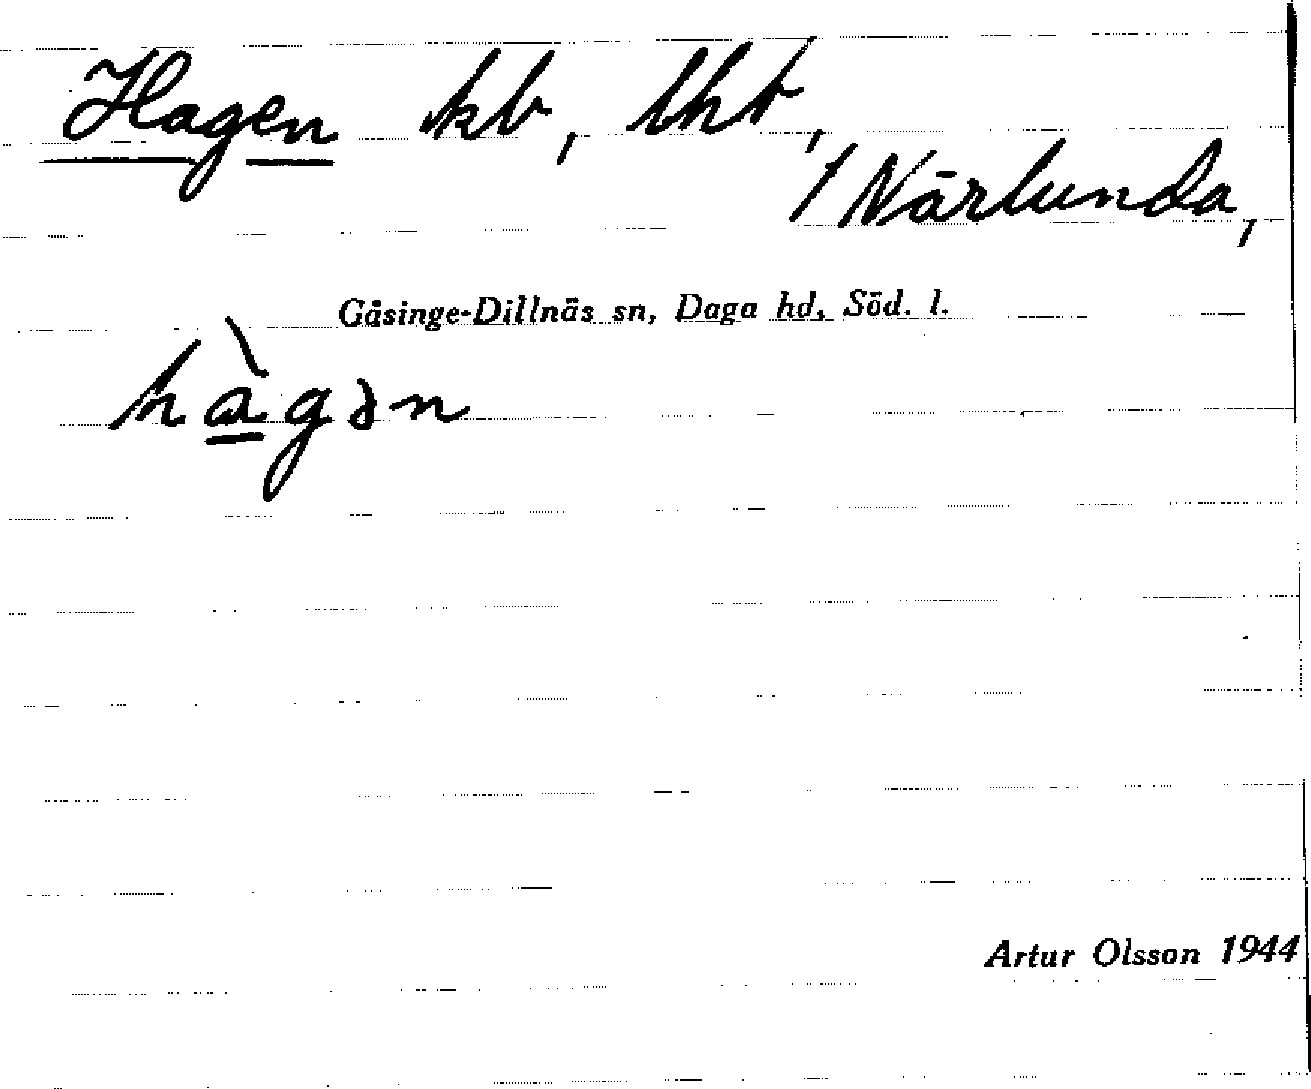 Hagen kb, lht,
/ Närlunda,
Gåsinge-Dillnäs sn, Daga hd, Söd. l.
hàgən
Artur Olsson 1944